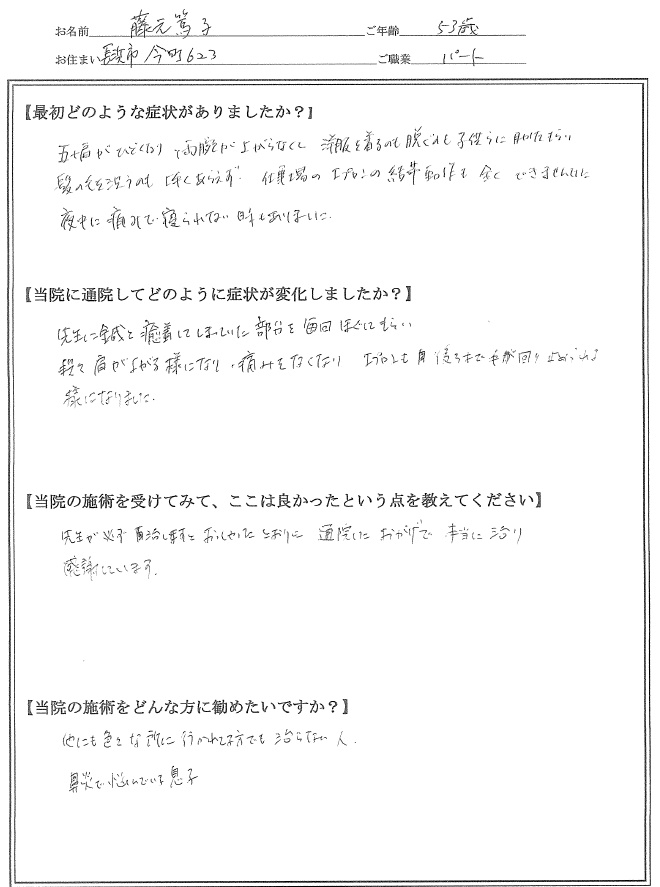 お名前 藤元篤子 ご年齢 53歳
お住まい 長浜市 今町623 ご職業 パート
【最初どのような症状がありましたか？】
五十肩がひどくなり、両腕が上がらなくし 洋服を着るのも脱ぐのも子供らに助けてもらい
髪の毛を洗うのも 仕事場のエプロンの結帯動作も全くできませんでした
夜中に痛みで寝られない時もありました。
【当院に通院してどのように症状が変化しましたか？】
先生に鍼と癒着してしまっていた部分を毎回ほぐしてもらい
段々肩が上がる様になり、痛みもなくなり エプロンも自 後ろまで手が回り止められる
様になりました。
【当院の施術を受けてみて、ここは良かったという点を教えてください】
先生が必ず 治しますと おっしゃったとおりに 通院した おかげで 本当に治り
感謝しています。
【当院の施術をどんな方に勧めたいですか？】
他にも色々な所に行かれてる方でも治らない人。
鼻炎で悩んでいる息子